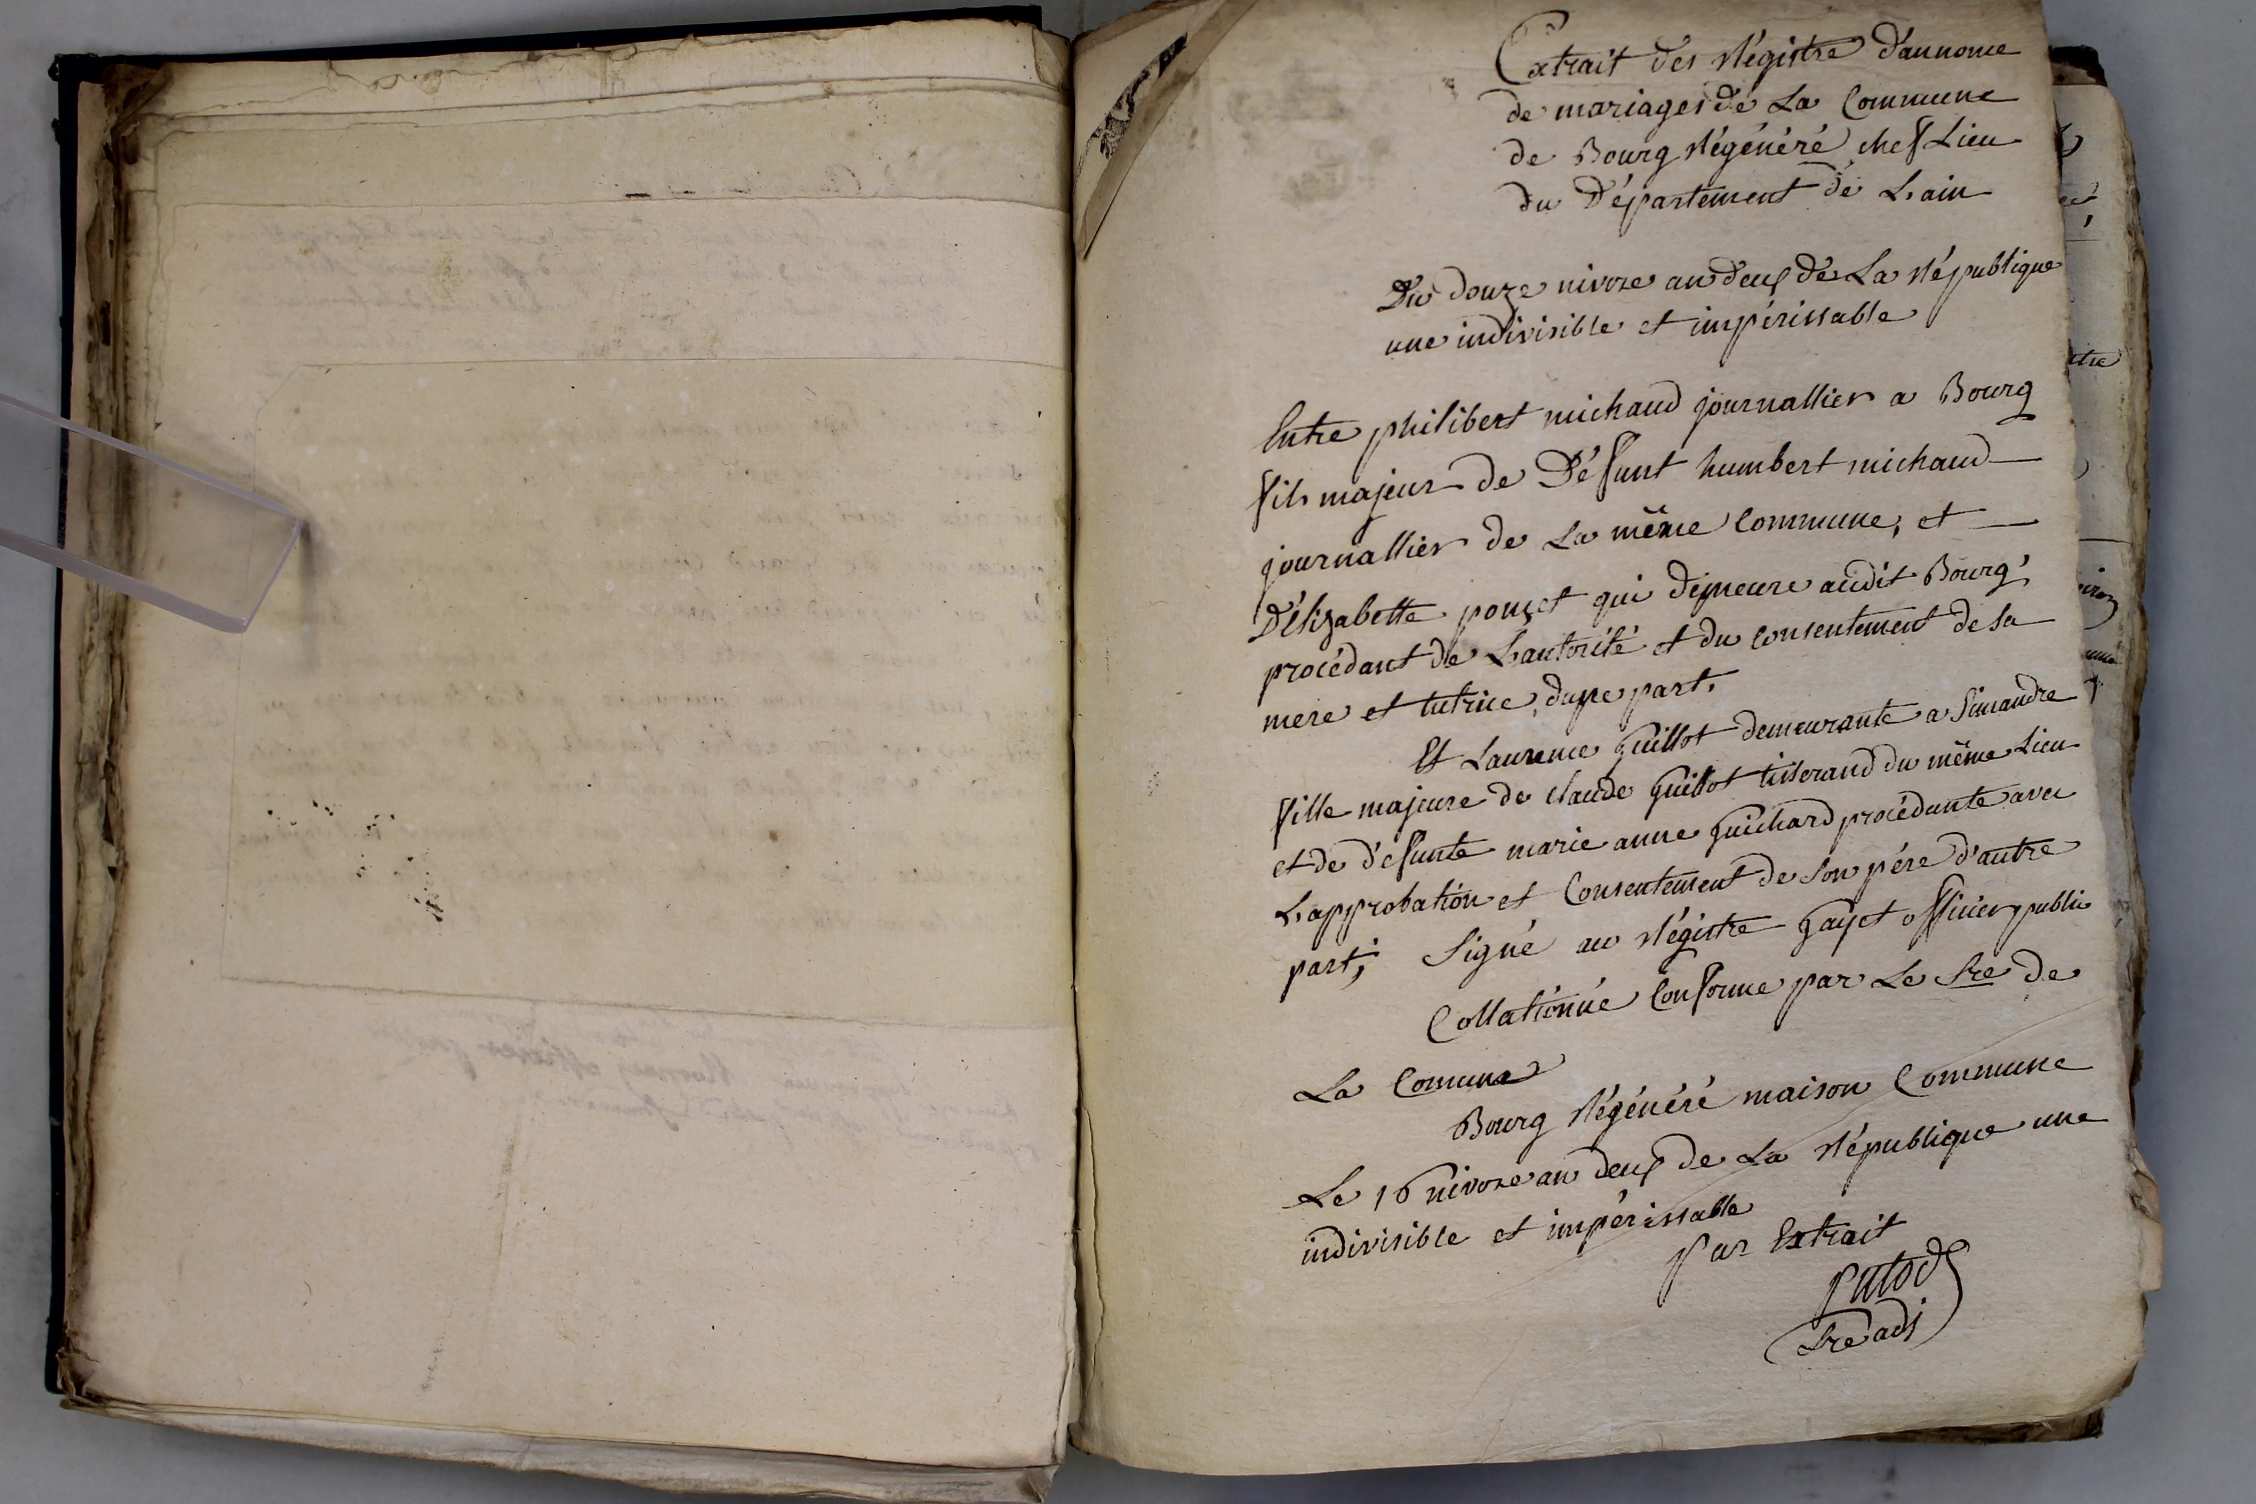 Extrait des Régistre d'annonce
de mariages de La Commune
de Bourg Régénéré chef Lieu
du Département de L'ain
Du douze nivose an deux de La République
une indivisible et impérissable
Entre philibert michaud journallier a Bourg
fils majeur de Défunt humbert michaud
journallier de La même Commune, et
D'élizabette ponçet qui demeure audit Bourg,
procédant de L'autorité et du consentement de sa
mere et tutrice, dune part,
Et Laurence Guillot demeurante a Simandre
fille majeure de claude Guillot tisserand du même Lieu
et de défunte marie anne Guichard procédante avec
L'approbation et Consentement de son pére d'autre
part; Signé au Régistre Gayet officier public
Collationné Conforme par Le Sre de
La Comune
Bourg Régénéré maison Commune
Le 16 nivose an deux de La République une
indivisible et impérissable
Par Extrait
Sre adj